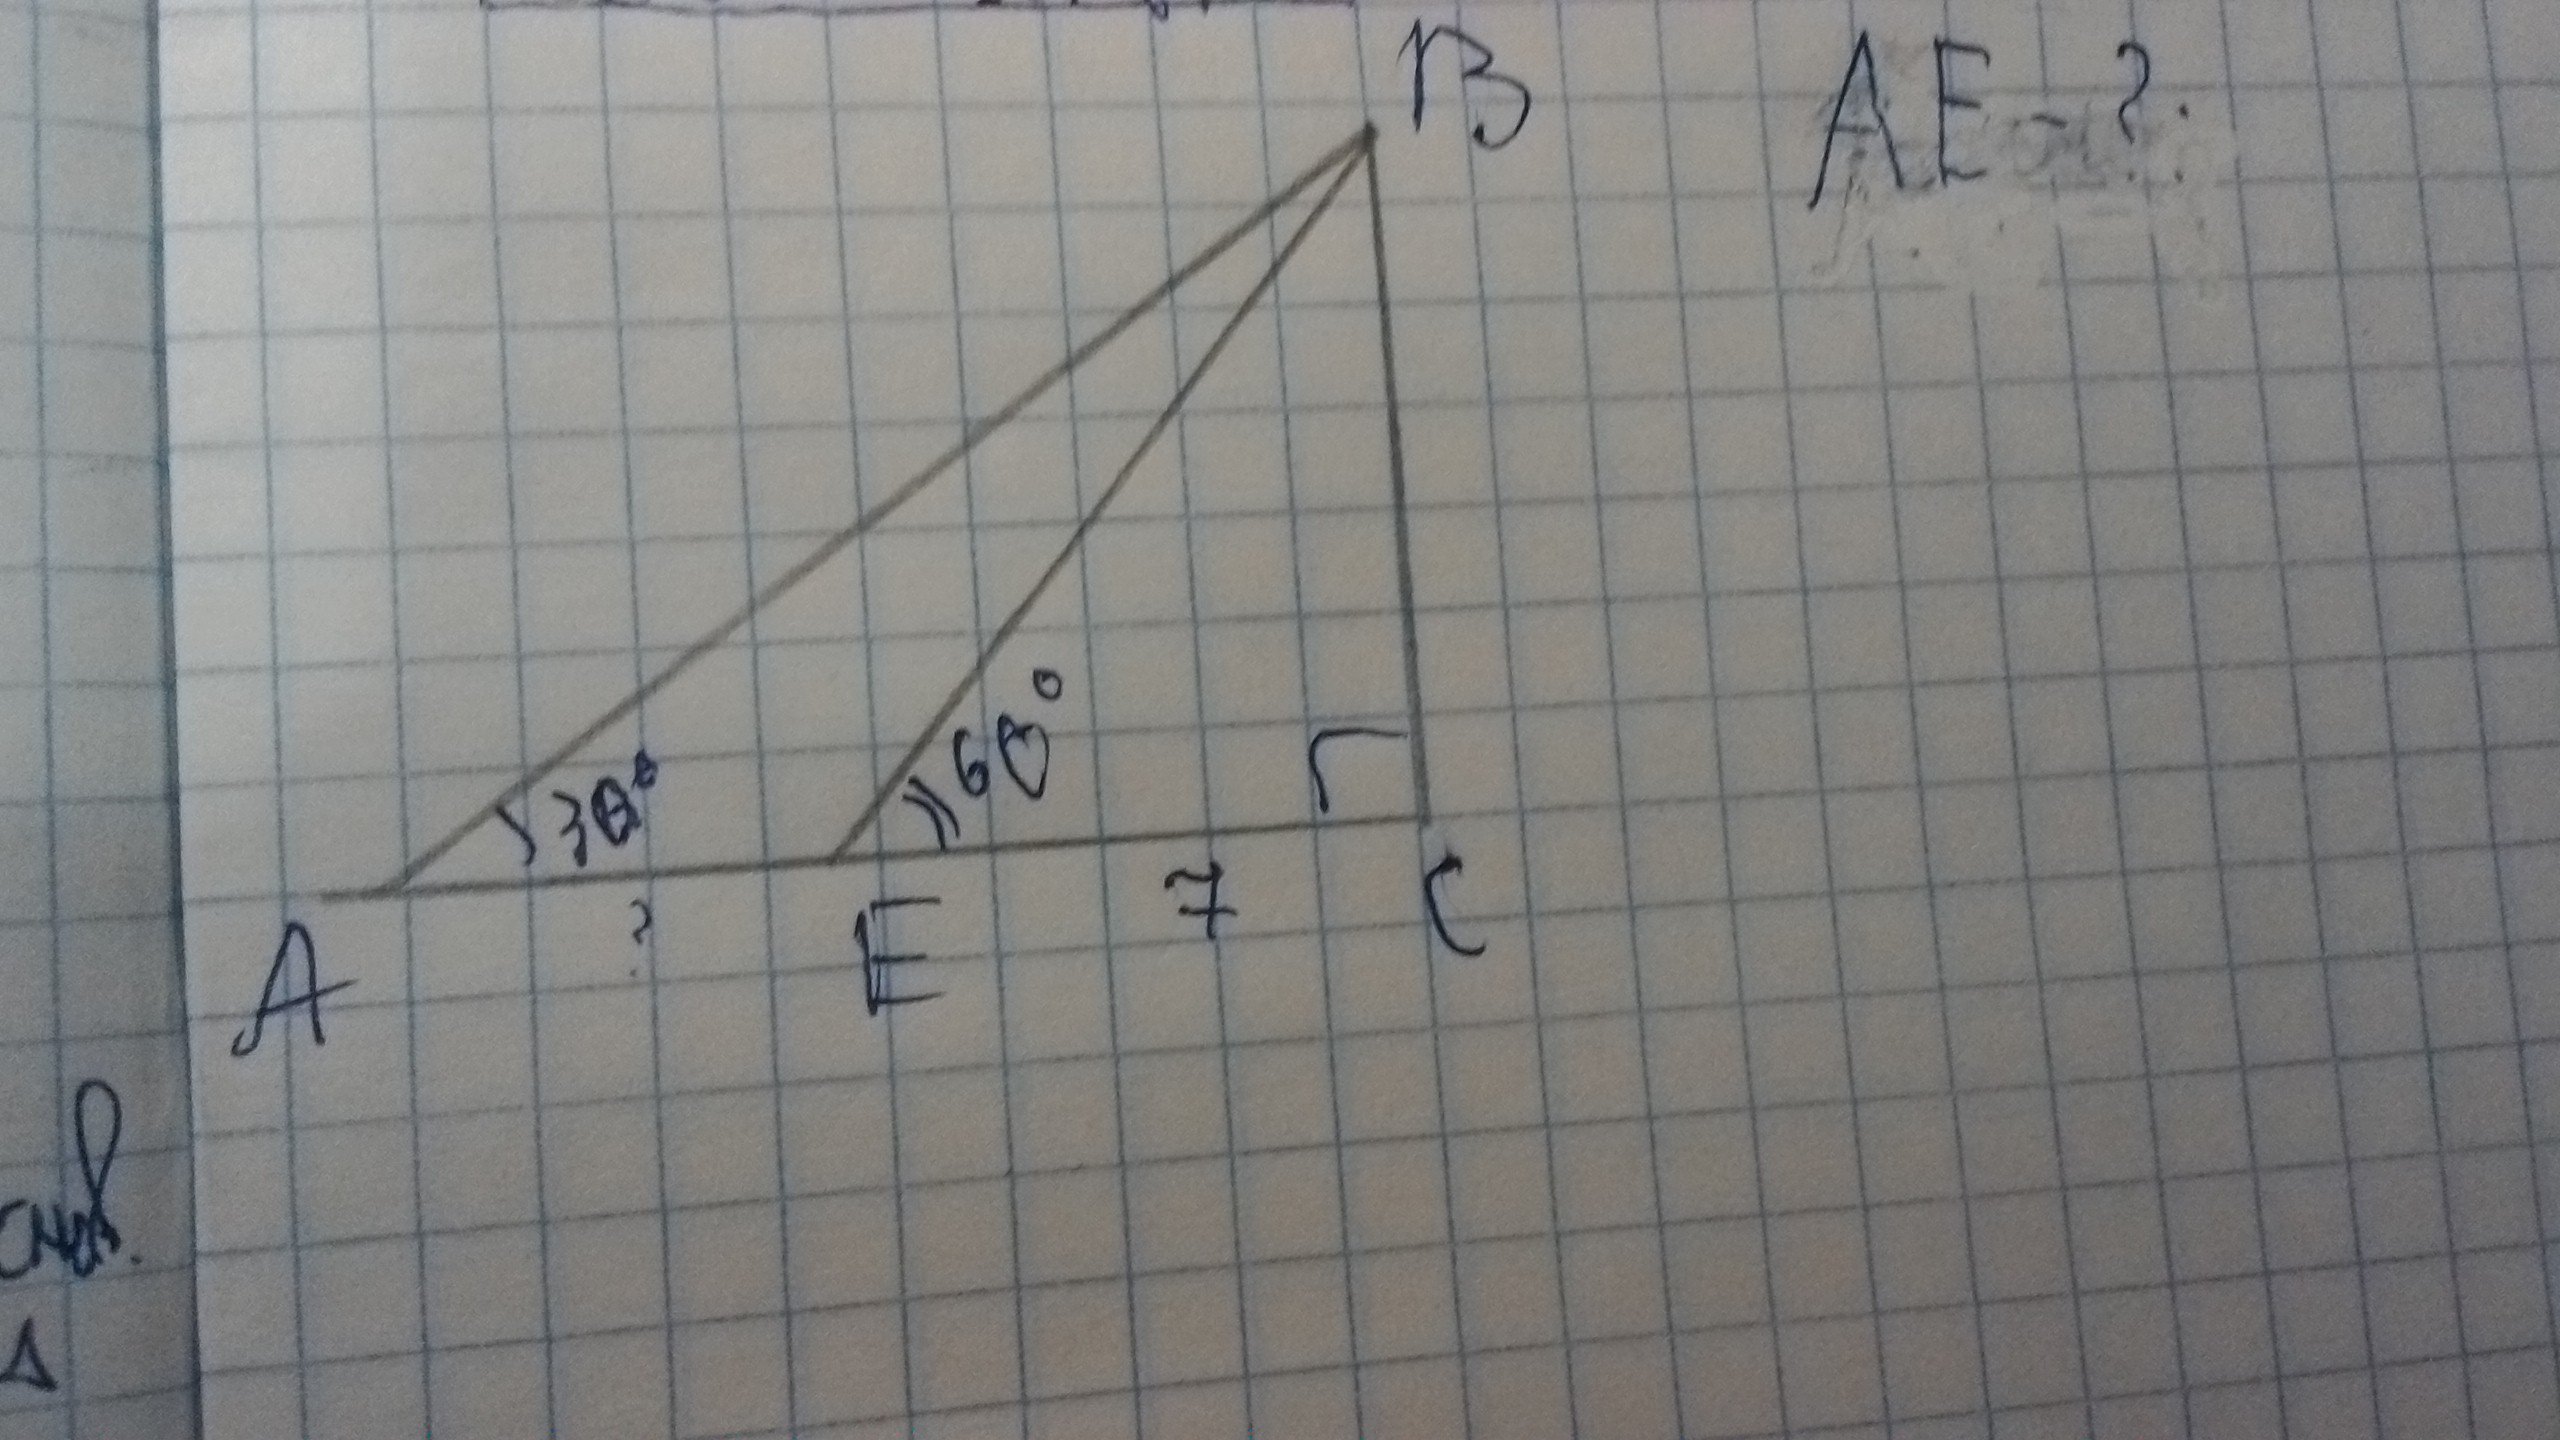 B
AE-?.
30°
60°
?
7
A
E
C